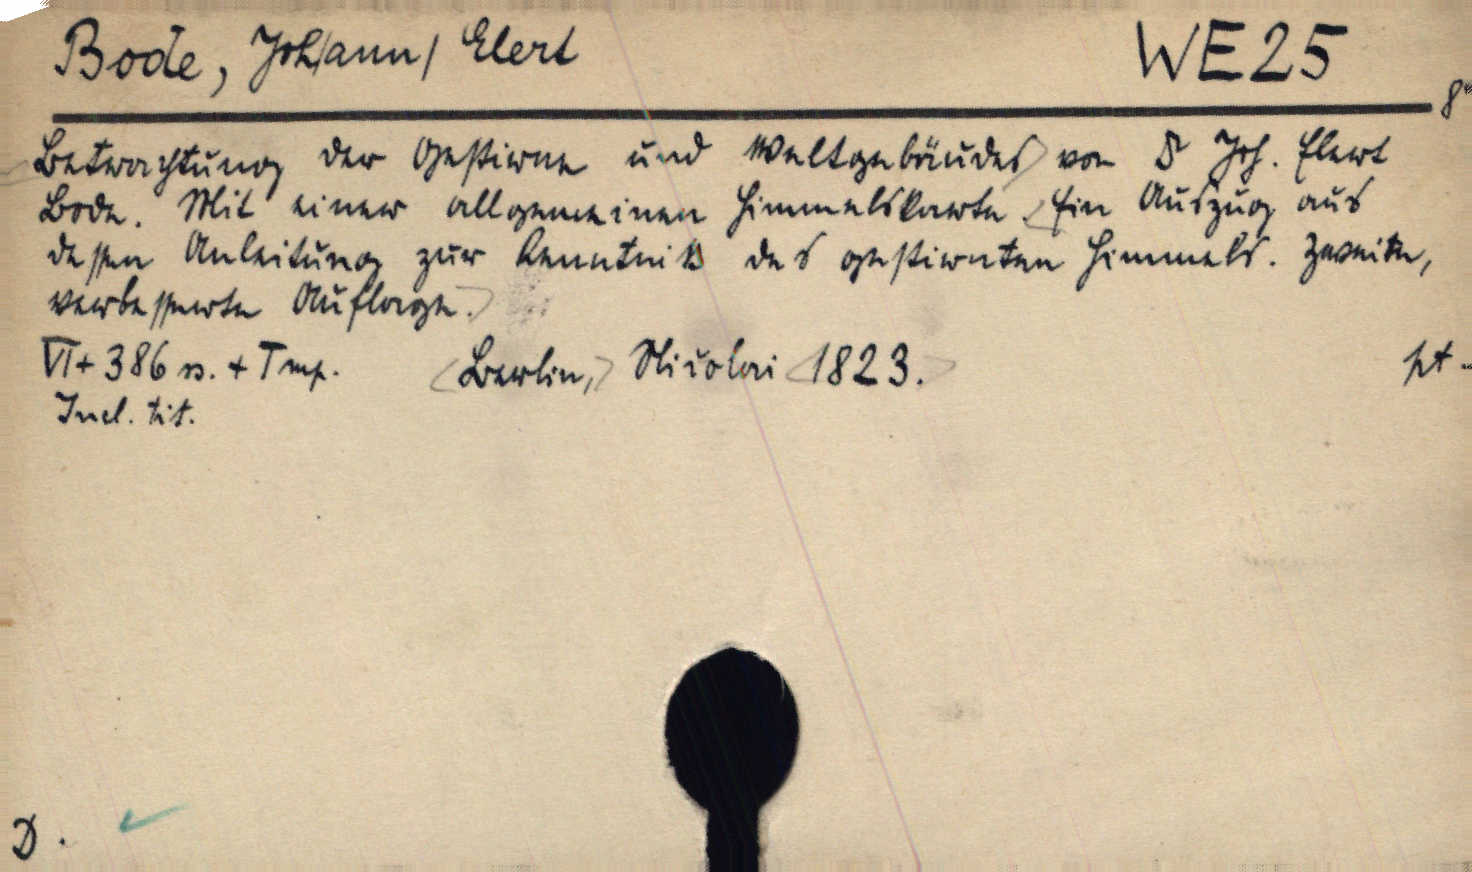 Bode, Joh/ann/ Elert WE25
8°
Betrachtung der Gestirne und Weltgebäudes von D Joh. Elert
Bode. Mit einer allgemeinen Himmelskarte. Ein Auszug aus
dessen Anleitung zur Kenntniß des gestirnten Himmels. Zweite,
verbesserte Auflage.
VI+386 ss. + Tmp. (Berlin,) Nicolai (1823.) pt.
Incl. tit.
D.